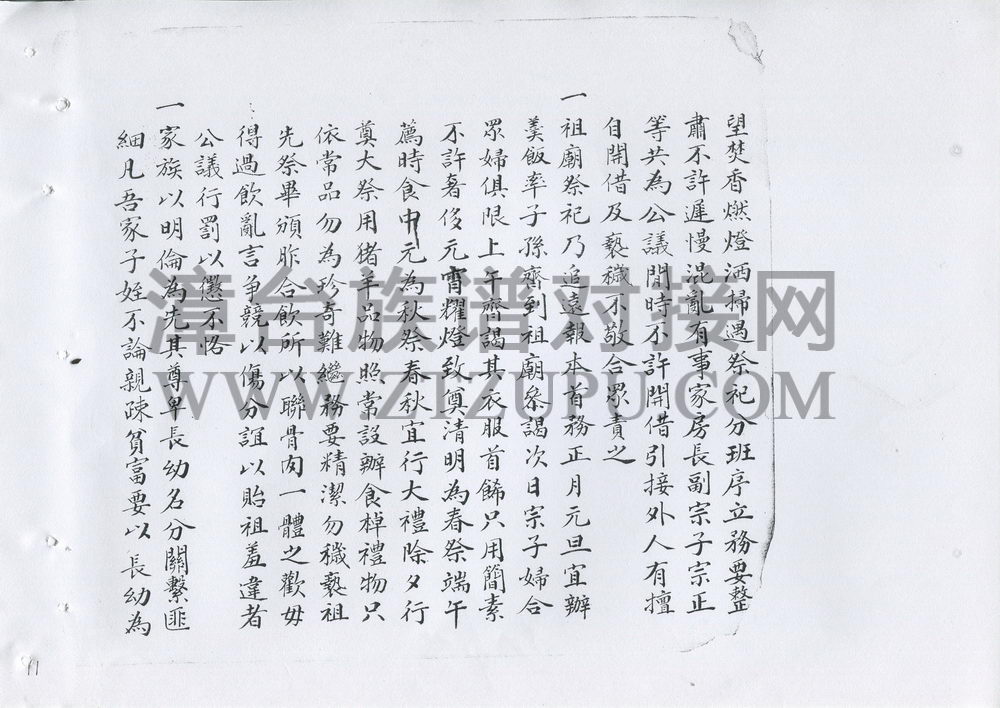 望焚香燃燈洒掃遇祭祀分班序立務要整
肅不許遲慢混亂有事家房長副宗子宗正
等共為公議閒時不許開借引接外人有擅
自開借及褻穢不敬合眾責之
一祖廟祭祀乃追遠報本首務正月元旦宜辦
羹飯率子孫齊到祖廟叅謁次日宗子婦合
眾婦俱限上午齊謁其衣服首餙只用簡素
不許奢侈元宵耀燈致奠清明為春祭端午
薦時食中元為秋祭春秋宜行大禮除夕行
奠大祭用猪羊品物照常設辦食棹禮物只
依常品勿為珍奇難繼務要精潔勿穢褻祖
先祭畢頒胙合飲所以聯骨肉一體之歡毋
得過飲亂言爭競以傷分誼以貽祖羞違者
公議行罰以懲不恪
一家族以明倫為先其尊卑長幼名分關繫匪
細凡吾家子姪不論親疎貧富要以長幼為
漳台族谱对接网
WWW.ZIZUPU.COM
11